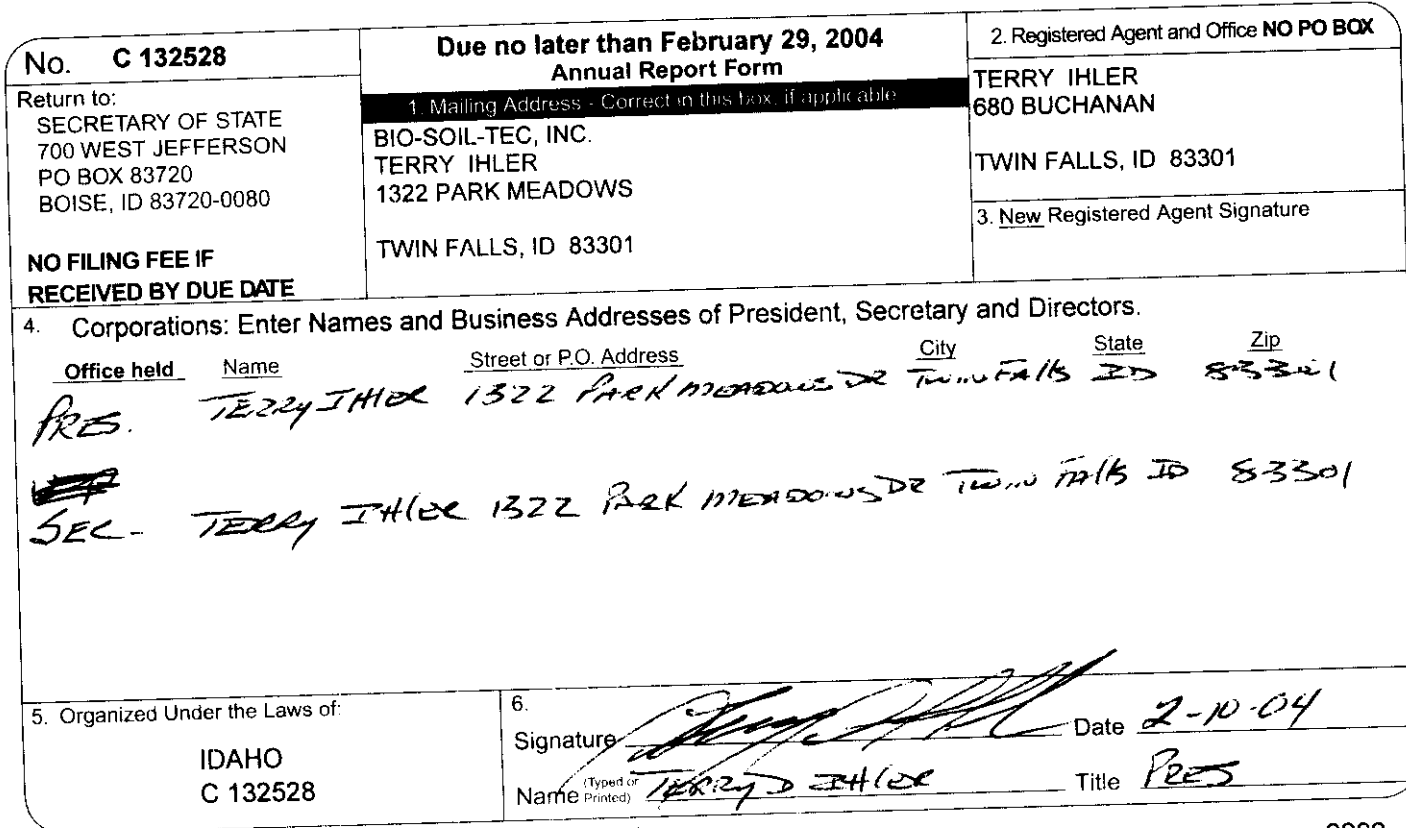 No. C 132528
Return to:
SECRETARY OF STATE
700 WEST JEFFERSON
PO BOX 83720
BOISE, ID 83720-0080
NO FILING FEE IF
RECEIVED BY DUE DATE
Due no later than February 29, 2004
Annual Report Form
1. Mailing Address - Correct in this box, if applicable
BIO-SOIL-TEC, INC.
TERRY IHLER
1322 PARK MEADOWS
TWIN FALLS, ID 83301
2. Registered Agent and Office NO PO BOX
TERRY IHLER
680 BUCHANAN
TWIN FALLS, ID 83301
3. New Registered Agent Signature
4. Corporations: Enter Names and Business Addresses of President, Secretary and Directors.
Office held Name Street or P.O. Address City State Zip
PRES. TERRY IHLER 1322 PARK MEADOWS DR TWIN FALLS ID 83301
SEC- TERRY IHLER 1322 PARK MEADOWS DR TWIN FALLS ID 83301
5. Organized Under the Laws of:
IDAHO
C 132528
6.
Signature Date 2-10-04
Name (Typed or Printed) TERRY D IHLER Title PRES